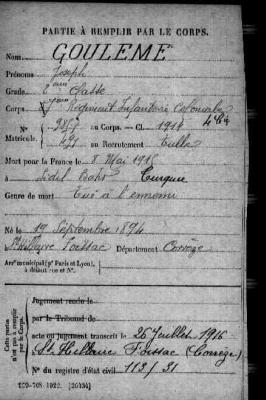 PARTIE À REMPLIR PAR LE CORPS.
Nom GOULEME
Prénoms Joseph
Grade 2ème Classe
Corps 7ème Régiment Infanterie Coloniale
N° Matricule. au Corps. — Cl. 1914
491 au Recrutement Tulle
Mort pour la France le 8 Mai 1915
à Sédil Bahr Turquie
Genre de mort Tué à l'ennemi
Né le 19 Septembre 1894
St Hilaire Foissac Département Corrèze
Arr* municipal (p' Paris et Lyon),
à défaut rue et N°.
Cette partie n'est pas à remplir par le Corps.
Jugement rendu le
par le Tribunal de
acte ou jugement transcrit le 26 Juillet 1916
à St Hilaire Foissac (Corrèze)
N° du registre d'état civil 113/31